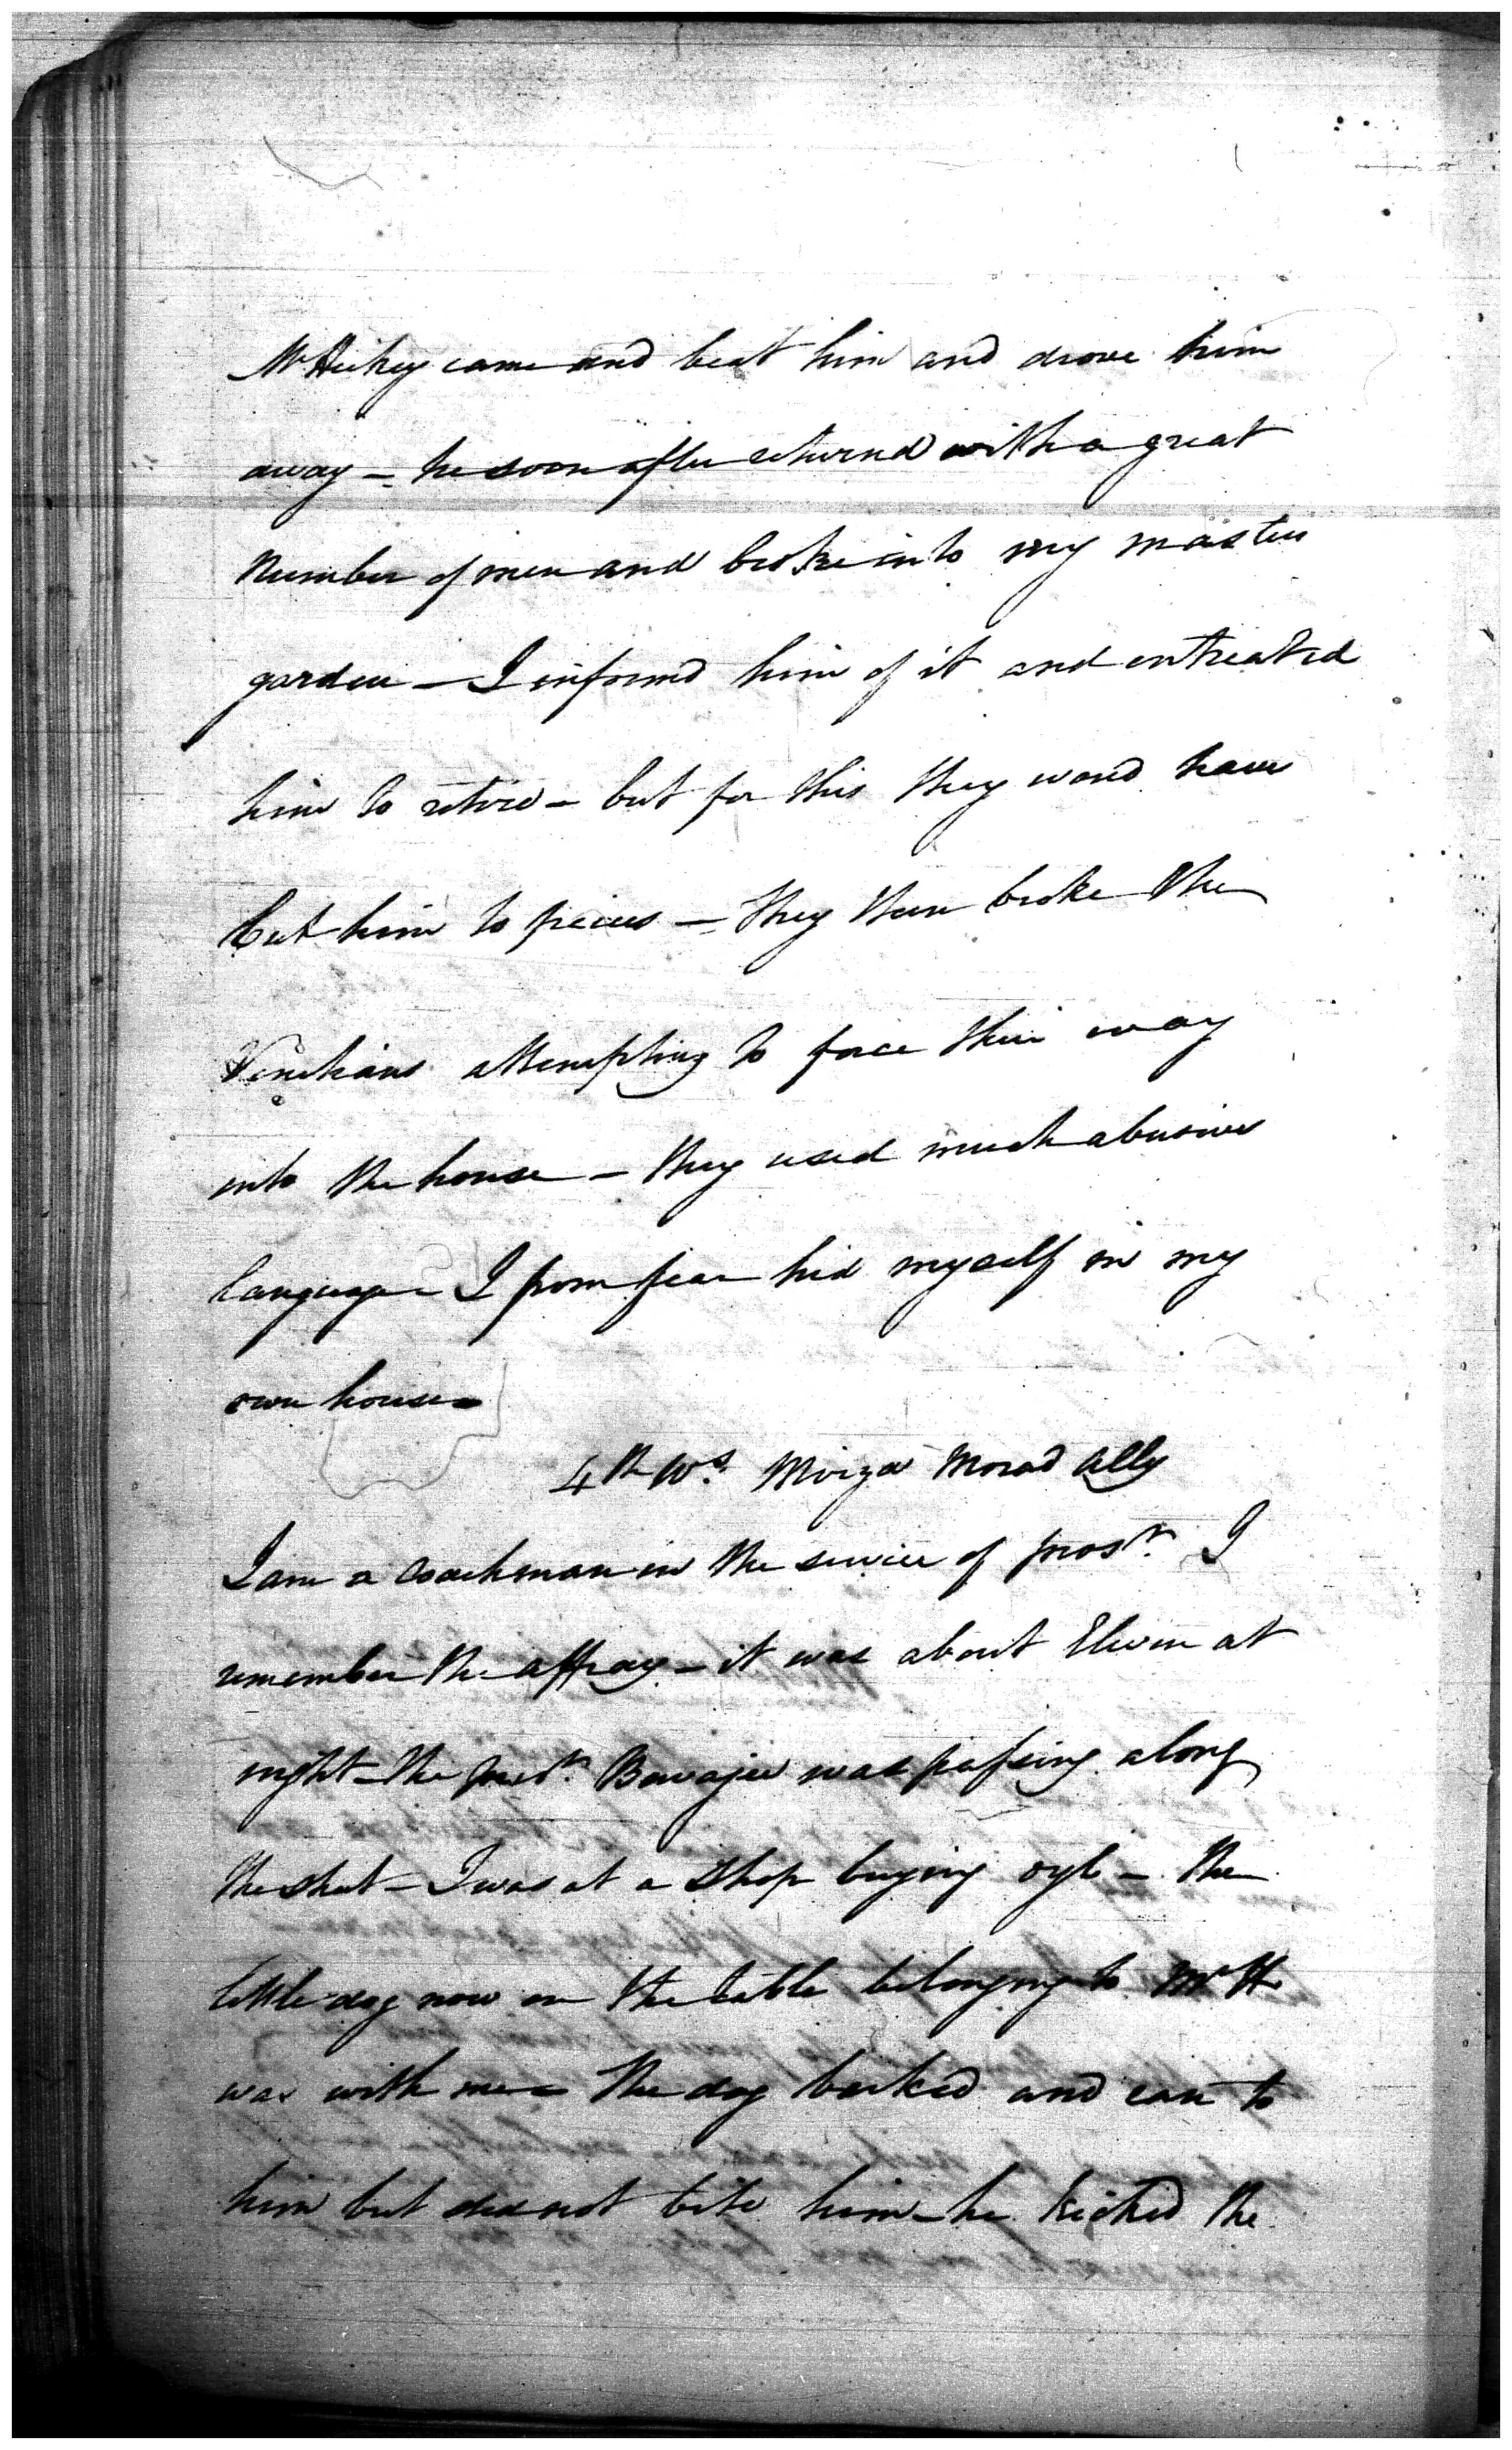 Mr Hickey came and beat him and drove him
away – he soon after returnd with a great
Number of men and broke into my masters
garden – I informd him of it and entreated
him to retire – but for this they woud have
Cut him to pieces – they then broke the
Venetians attempting to force their way
into the house – they used much abusive
language – I from fear hid myself in my
own house –
4th Ws. Mirza Morad Ally
I am a Coachman in the service of prosr. I
remember the affray – it was about Eleven at
night – the Bawajee was passing along
the street – I was at a Shop buying oyl – the
little dog now on the table belonging to Mr H.
was with me – the dog barked and ran to
him but did not bite him – he kicked the